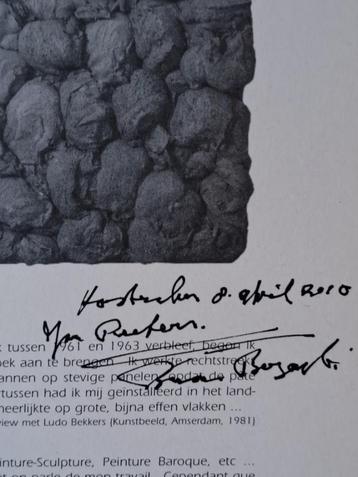 8. april 2010
k tussen 1961 en 1963 verbleef, begon ik
oek aan te brengen. Ik werkte rechtstreeks
annen op stevige panelen, omdat de pate
rtussen had ik mij geïnstalleerd in het land-
heerlijkte op grote, bijna effen vlakken ...
view met Ludo Bekkers (Kunstbeeld, Amsterdam, 1981)
inture-Sculpture, Peinture Baroque, etc ...
t on parle de mon travail. Cependant que